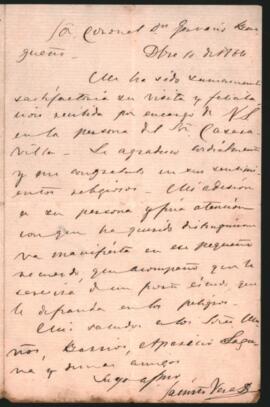 Sr. Coronel Dn Gervasio Bur
gueño.
Dbre 10 de 1864
Me ha sido sumamente
satisfactoria su visita y felicita
cion recibida por encargo de VS
en la persona del Sr.
villa. Le agradezco cordialmente
y me congratulo en sus sentimi
entos religiosos. Mi adhesion
a su persona y fina atencion
con que ha querido distinguirme
va manifiesta en ese pequeño
recuerdo, que acompaño, que le
servirá de un fuerte escudo, que
le defienda en los peligros.
Mis saludos a los Sres Mu
ños, Barrios, Aparicio Lagu
na y demas amigos
Suyo afmo
Jacinto Vera